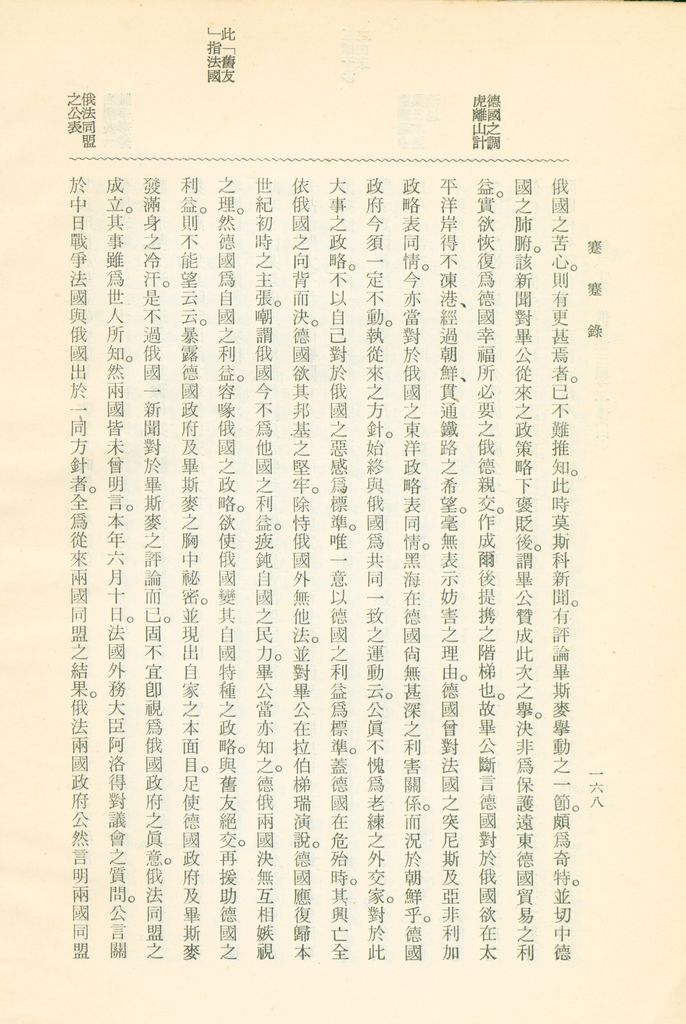 蹇蹇錄
一六八
德國之調
虎離山計
此「舊友
」指法國
俄法同盟
之公表
俄國之苦心。則有更甚焉者。已不難推知。此時莫斯科新聞。有評論畢斯麥擧動之一節。頗爲奇特。並切中德
國之肺腑。該新聞對畢公從來之政策略下褒貶後。謂畢公贊成此次之擧。決非爲保護遠東德國貿易之利
益。實欲恢復爲德國幸福所必要之俄德親交。作成爾後提携之階梯也。故畢公斷言德國對於俄國欲在太
平洋岸得不凍港、經過朝鮮、貫通鐵路之希望。毫無表示妨害之理由。德國曾對法國之突尼斯及亞非利加
政略表同情。今亦當對於俄國之東洋政略表同情。黑海在德國尙無甚深之利害關係。而況於朝鮮乎。德國
政府今須一定不動。執從來之方針。始終與俄國爲共同一致之運動云。公眞不愧爲老練之外交家。對於此
大事之政略。不以自己對於俄國之惡感爲標準。唯一意以德國之利益爲標準。蓋德國在危殆時。其興亡全
依俄國之向背而決。德國欲其邦基之堅牢。除恃俄國外無他法。並對畢公在拉伯梯瑞演說。德國應復歸本
世紀初時之主張。嘲謂俄國今不爲他國之利益。疲鈍自國之民力。畢公當亦知之。德俄兩國決無互相嫉視
之理。然德國爲自國之利益。容喙俄國之政略。欲使俄國變其自國特種之政略。與舊友絕交。再援助德國之
利益。則不能望云云。暴露德國政府及畢斯麥之胸中祕密。並現出自家之本面目。足使德國政府及畢斯麥
發滿身之冷汗。是不過俄國一新聞對於畢斯麥之評論而已。固不宜卽視爲俄國政府之眞意。俄法同盟之
成立。其事雖爲世人所知。然兩國皆未曾明言。本年六月十日。法國外務大臣阿洛得對議會之質問。公言關
於中日戰爭法國與俄國出於一同方針者。全爲從來兩國同盟之結果。俄法兩國政府公然言明兩國同盟